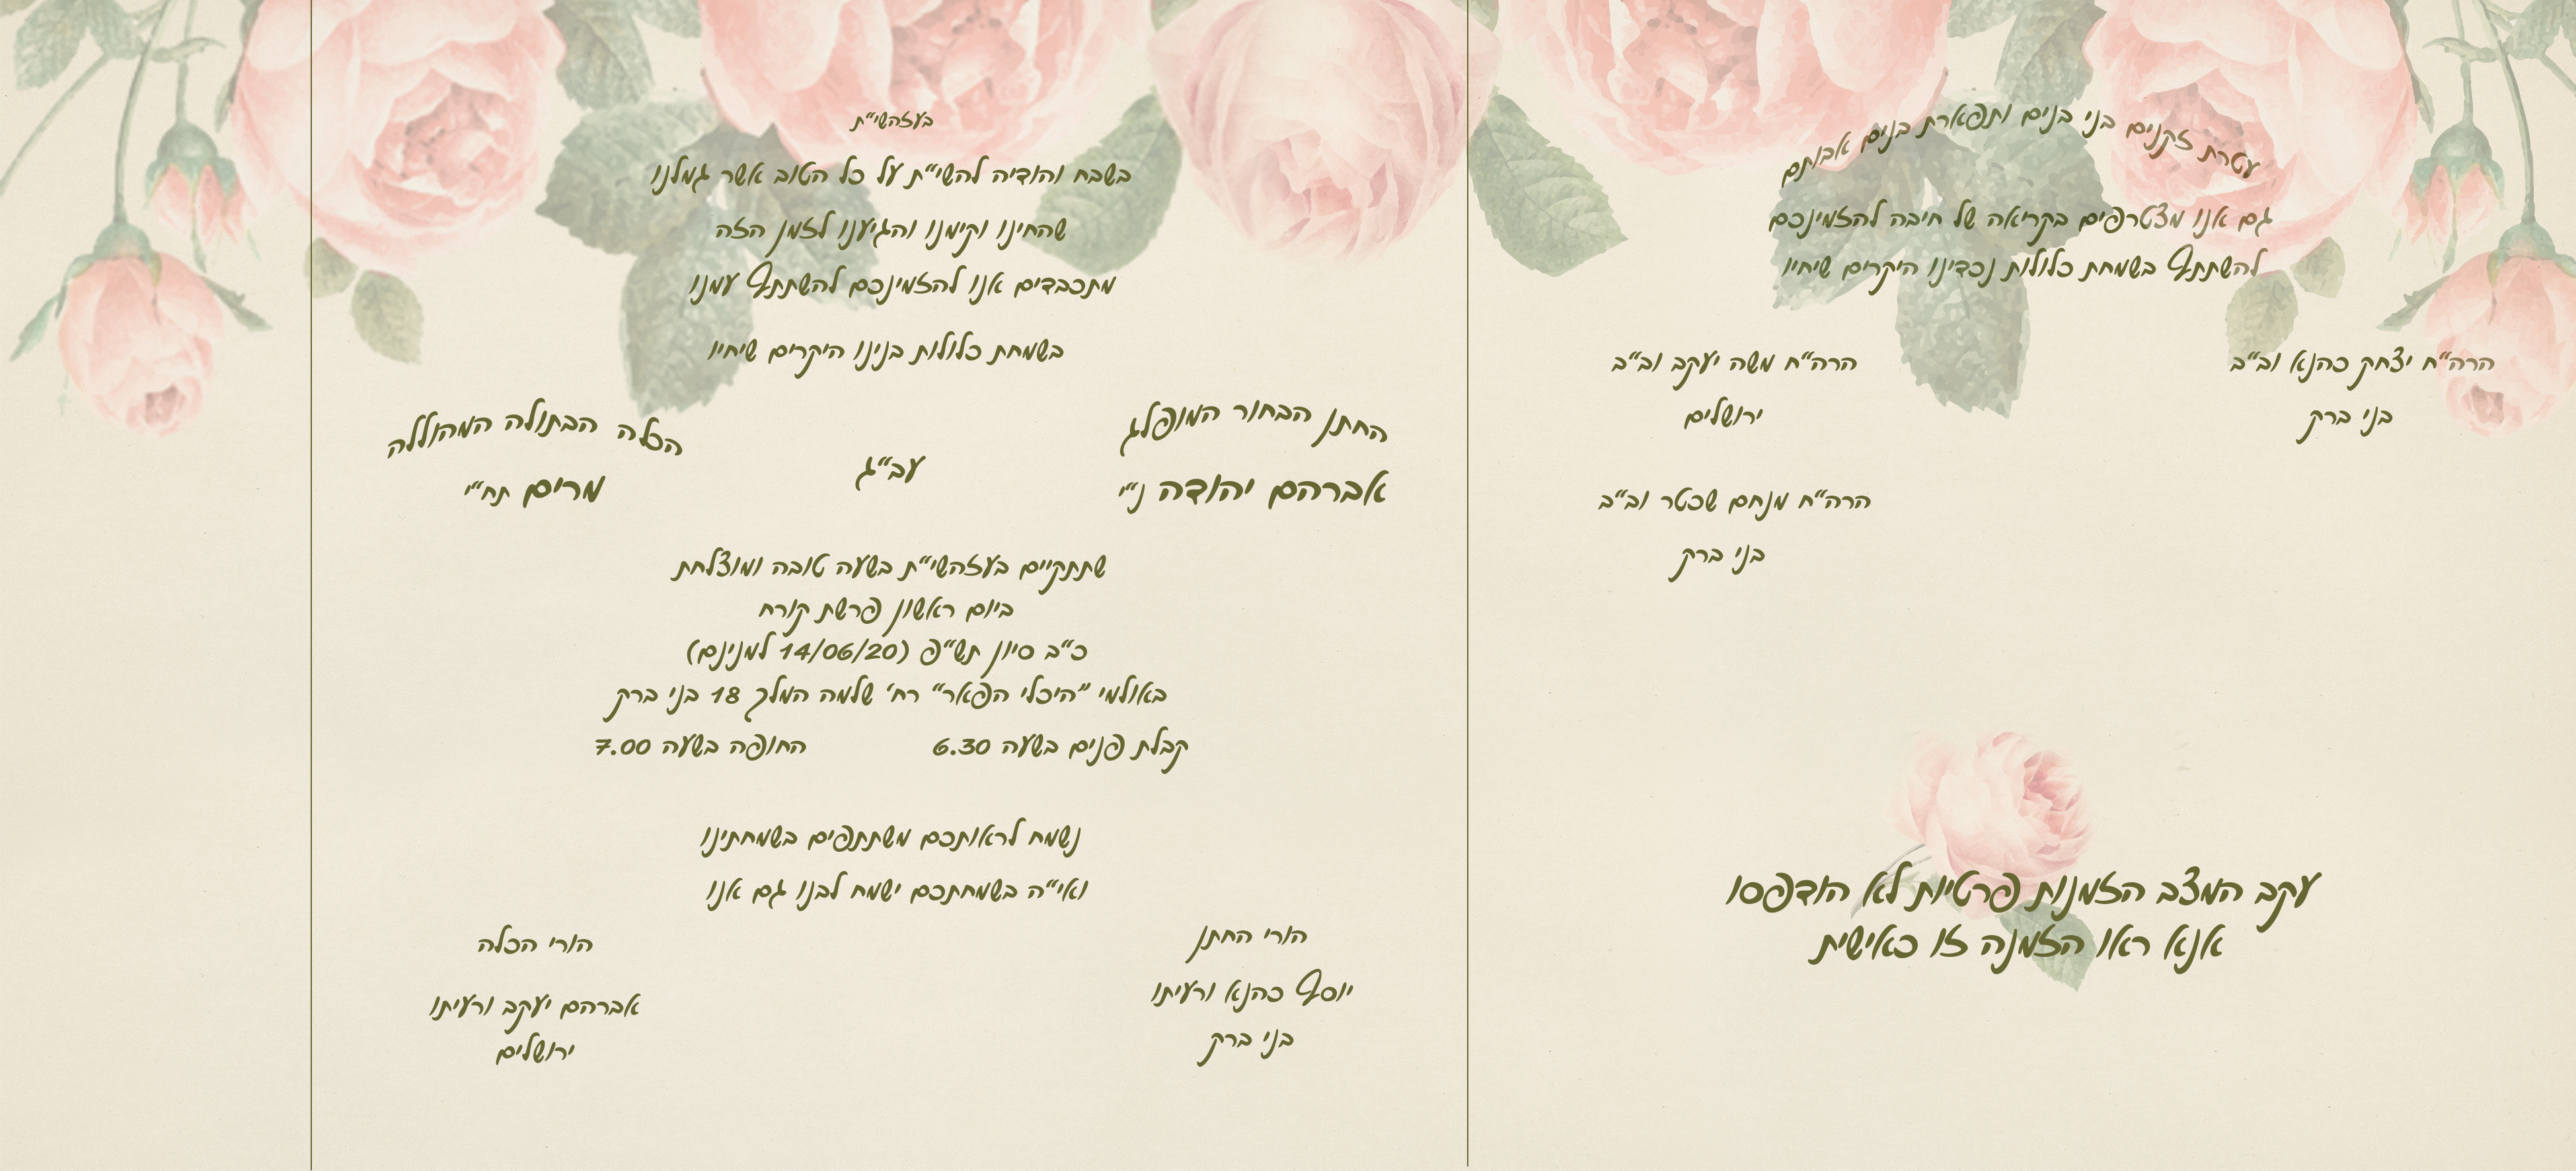 עטרת זקנים בני בנים ותפארת בנים אבותם
גם אנו מצטרפים בקריאה של חיבה להזמינכם
להשתתף בשמחת כלולות נכדינו היקרים שיחיו
הרה"ח יצחק כהנא וב"ב
בני ברק
הרה"ח משה יעקב וב"ב
ירושלים
הרה"ח מנחם שכטר וב"ב
בני ברק
עקב המצב הזמנות פרטיות לא הודפסו
אנא ראו הזמנה זו כאישית
בעזהשי"ת
בשבח והודיה להשי"ת על כל הטוב אשר גמלנו
שהחינו וקימנו והגיענו לזמן הזה
מתכבדים אנו להזמינכם להשתתף עמנו
בשמחת כלולות בנינו היקרים שיחיו
החתן הבחור המופלג
אברהם יהודה ני"י
עב"ג
הכלה הבתולה המהוללה
מרים תחי"
שתתקיים בעזהשי"ת בשעה טובה ומוצלחת
ביום ראשון פרשת קורח
כ"ב סיון תש"פ (14/06/20 למנינם)
באולמי "היכלי הפאר" רח' שלמה המלך 18 בני ברק
קבלת פנים בשעה 6.30 החופה בשעה 7.00
נשמח לראותכם משתתפים בשמחתינו
ואי"ה בשמחתכם ישמח לבנו גם אנו
הורי החתן
יוסף כהנא ורעיתו
בני ברק
הורי הכלה
אברהם יעקב ורעיתו
ירושלים